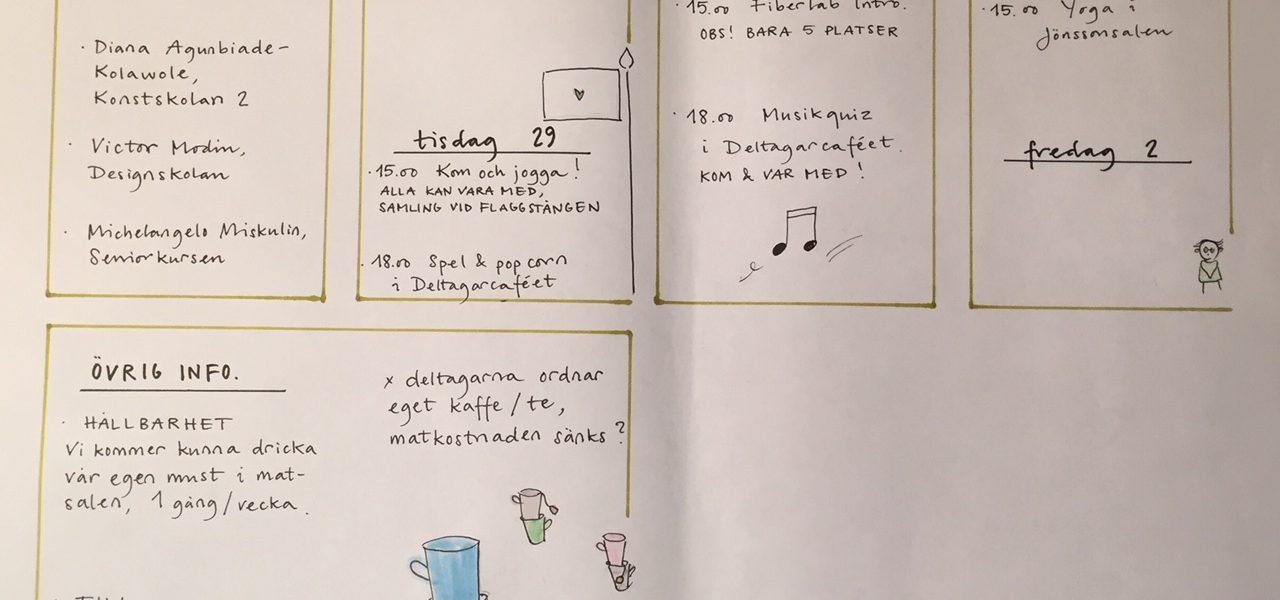 · Diana Agunbiade-
Kolawole,
Konstskolan 2
· Victor Modin,
Designskolan
· Michelangelo Miskulin,
Seniorkursen
tisdag 29
· 15.00 Kom och jogga!
ALLA KAN VARA MED,
SAMLING VID FLAGGSTÅNGEN
· 18.00 Spel & popcorn
i Deltagarcaféet
· 15.00 Fiberlab Intro.
OBS! BARA 5 PLATSER
· 18.00 Musikquiz
i Deltagarcaféet.
KOM & VAR MED!
· 15.00 Yoga i
Jönssonsalen
fredag 2
ÖVRIG INFO.
· HÅLLBARHET
Vi kommer kunna dricka
vår egen must i mat-
salen, 1 gång/vecka.
x deltagarna ordnar
eget kaffe/te,
matkostnaden sänks?